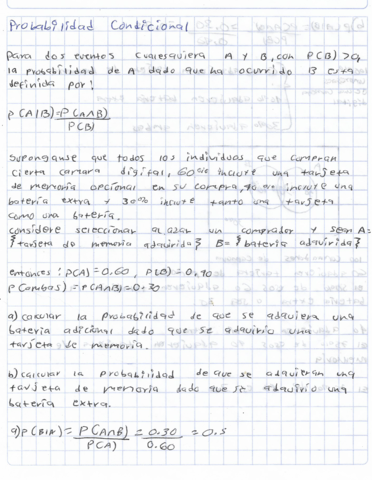 Probabilidad Condicional
Para dos eventos cualesquiera A y B, con P(B)>0,
la probabilidad de A dado que ha ocurrido B esta
definida por:
P(A|B)=P(A∩B)
P(B)
Suponganse que todos los individuos que compran
cierta camara digital, 60% incluye una tarjeta
de memoria opcional en su compra, 40% incluye una
bateria extra y 30% incluye tanto una tarjeta
como una bateria.
considere seleccionar al azar un comprador y sean A=
{tarjeta de memoria adquirida} B={bateria adquirida}
entonces: P(A)=0.60, P(B)=0.40
P(ambas)=P(A∩B)=0.30
a) calcular la probabilidad de que se adquiera una
bateria adicional dado que se adquirio una
tarjeta de memoria.
b) calcular la probabilidad de que se adquieran una
tarjeta de memoria dado que se adquirio una
bateria extra.
a) P(B|A)=P(A∩B)=0.30=0.5
P(A) 0.60